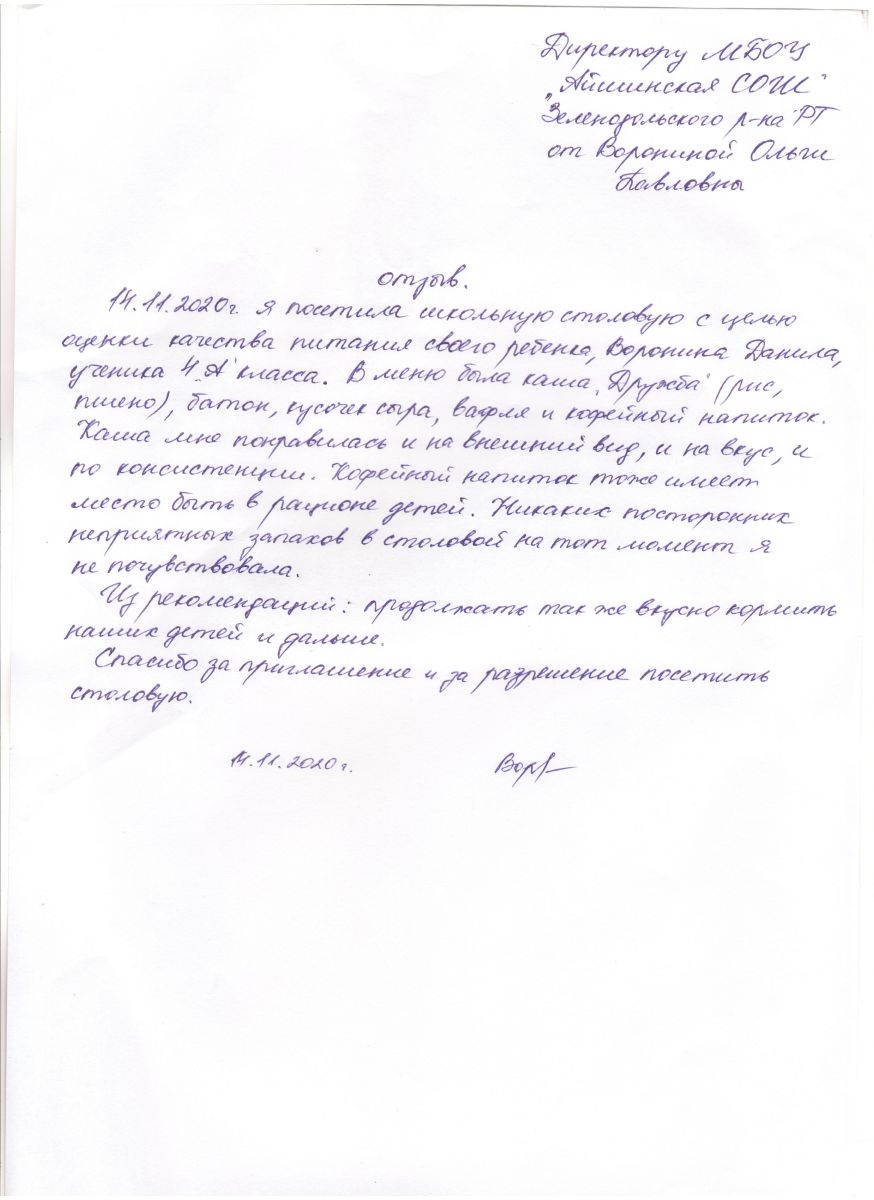 Директору МБОУ
„Айшинская СОШ"
Зеленодольского р-на РТ
от Ворониной Ольги
Павловны
отзыв.
14.11.2020г. я посетила школьную столовую с целью
оценки качества питания своего ребенка, Воронина Данила,
ученика 4 „А" класса. В меню была каша „Дружба" (рис,
пшено), батон, кусочек сыра, вафля и кофейный напиток.
Каша мне понравилась и на внешний вид, и на вкус, и
по консистенции. Кофейный напиток тоже имеет
место быть в рационе детей. Никаких посторонних
неприятных запахов в столовой на тот момент я
не почувствовала.
Из рекомендаций: продолжать так же вкусно кормить
наших детей и дальше.
Спасибо за приглашение и за разрешение посетить
столовую.
14.11.2020г.